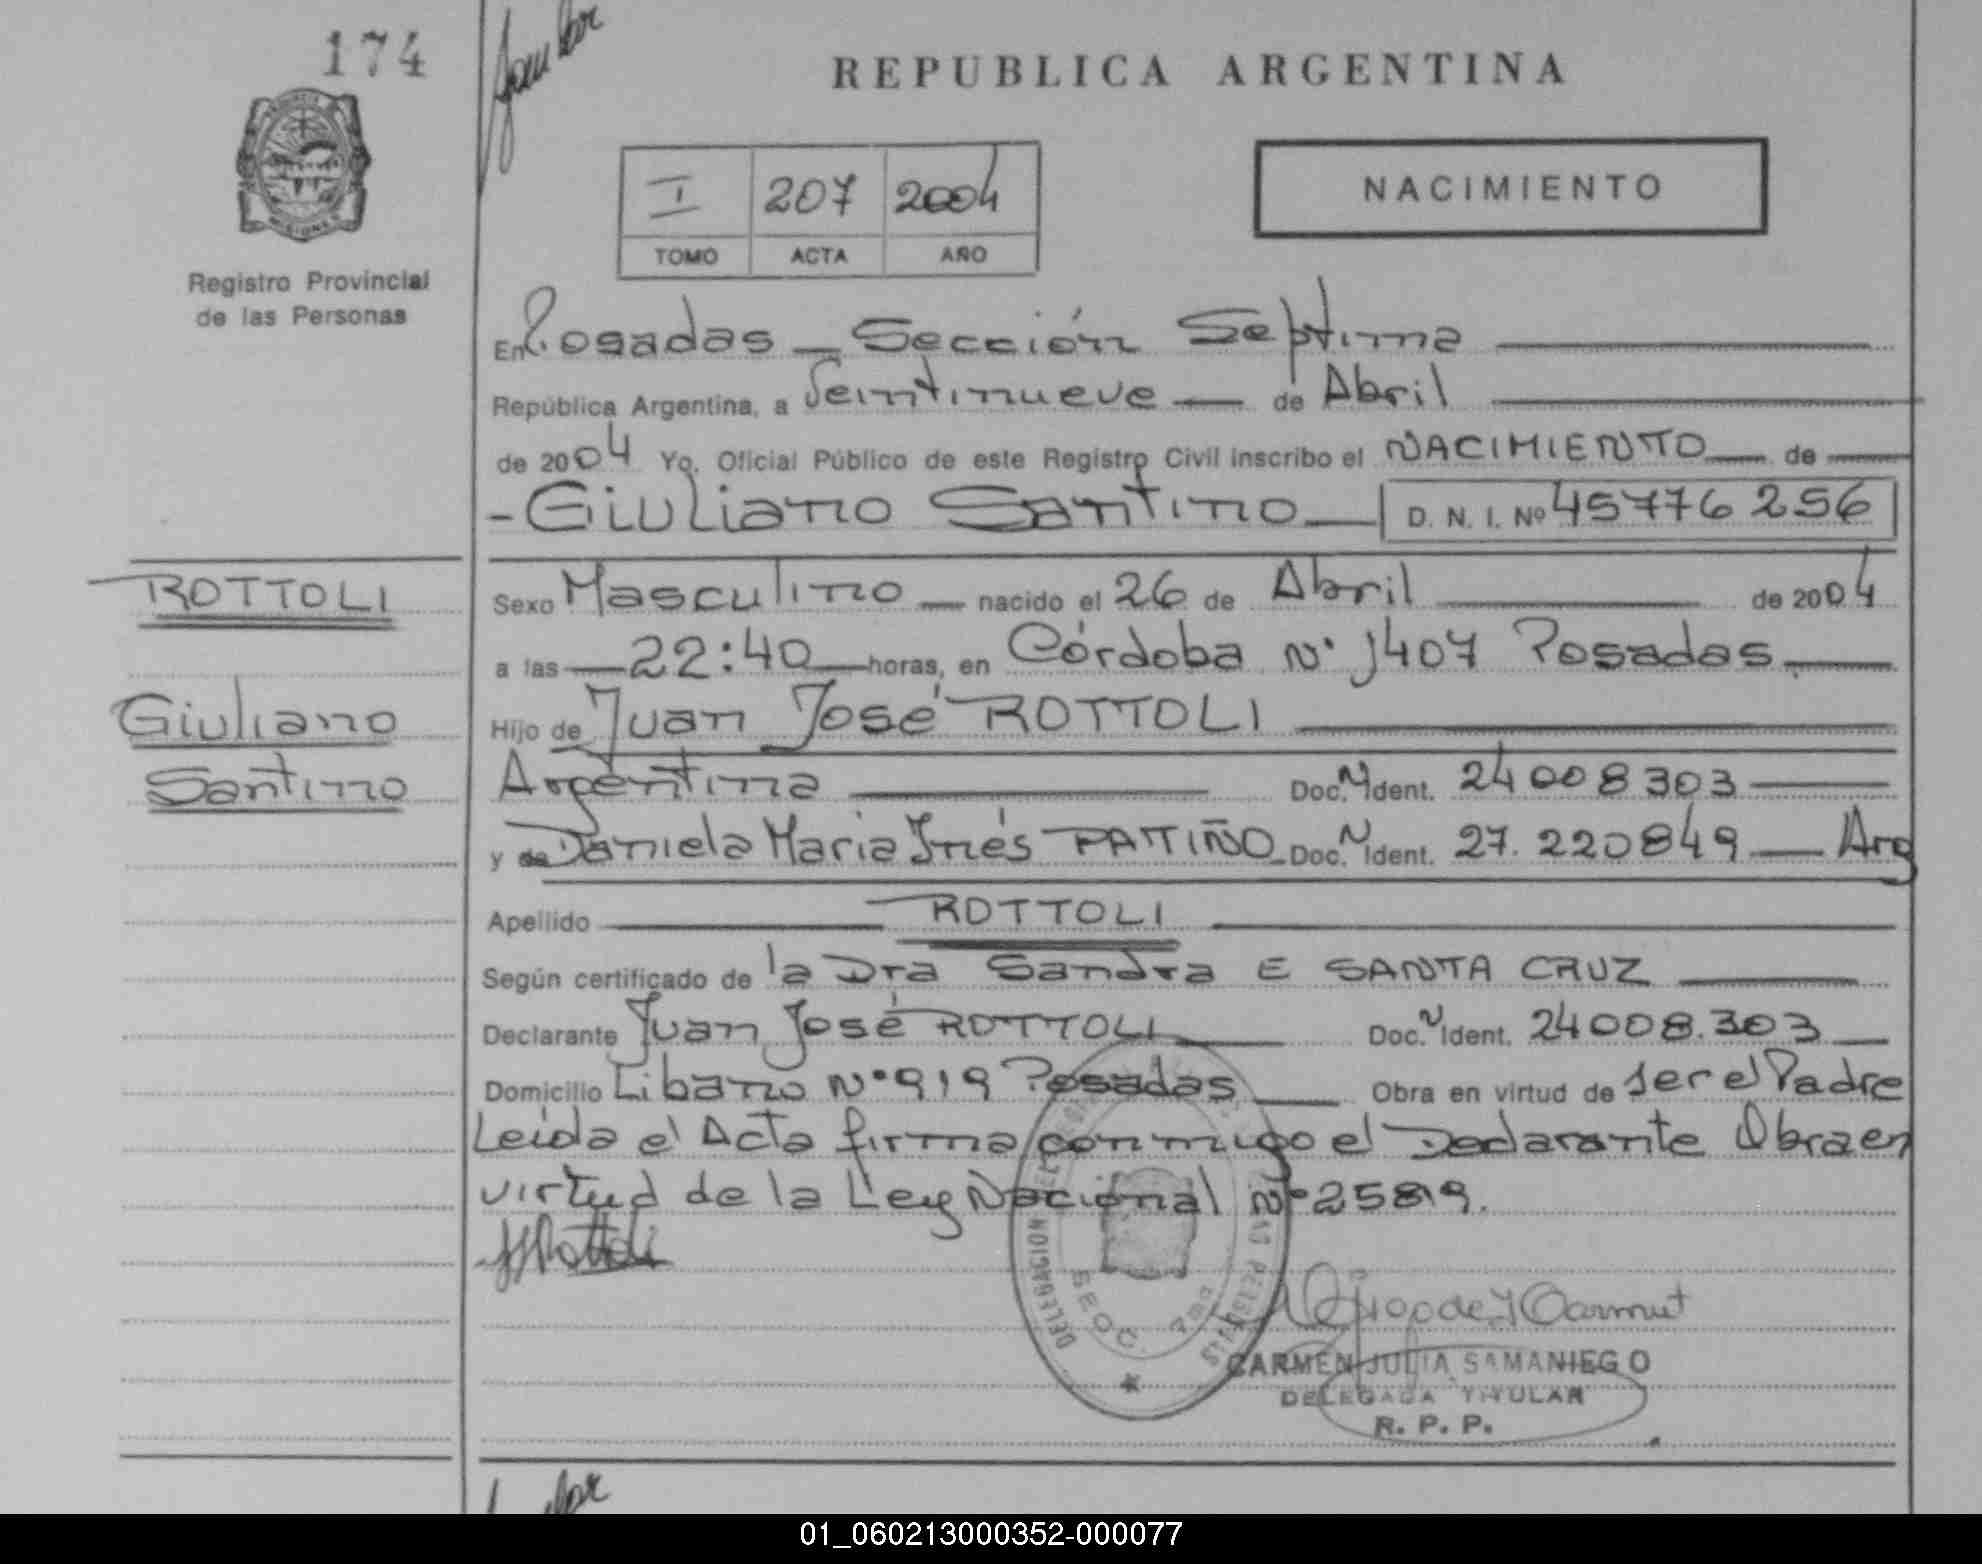 174
REPUBLICA ARGENTINA
I 207 2004
TOMO ACTA AÑO
NACIMIENTO
MISIONES
Registro Provincial
de las Personas
En Posadas - Sección Septima
República Argentina, a Veintinueve de Abril
de 2004 Yo, Oficial Público de este Registro Civil inscribo el NACIMIENTO de
- Giuliano Santino D. N. I. Nº 45776256
ROTTOLI
Giuliano
Santino
Sexo Masculino nacido el 26 de Abril de 2004
a las 22:40 horas, en Córdoba Nº 1407 Posadas
Hijo de Juan José ROTTOLI
Argentina Doc. N Ident. 24008303
y de Daniela Maria Inés PATIÑO Doc. N Ident. 27.220849 Arg
Apellido ROTTOLI
Según certificado de la Dra Sandra E SANTA CRUZ
Declarante Juan José ROTTOLI Doc. N Ident. 24008.303
Domicilio Libano Nº 919 Posadas Obra en virtud de ser el Padre
Leida el Acta firma conmigo el Declarante Obra en
virtud de la Ley Nacional Nº 25819.
JJRottoli
DELEGACION
CARMEN JULIA SAMANIEGO
DELEGADA TITULAR
R. P. P.
01_060213000352-000077